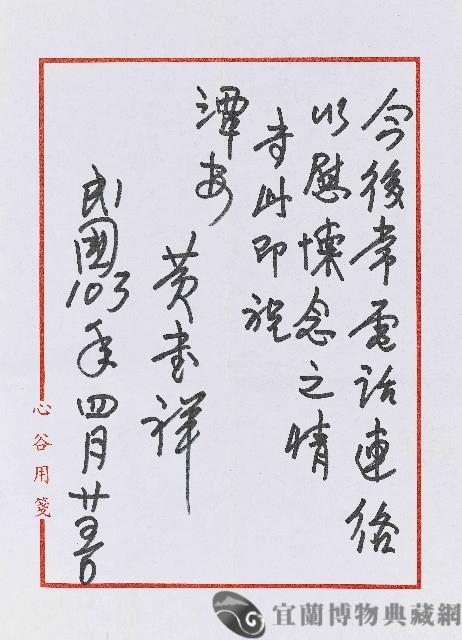 今後常電話連絡
以慰懷念之情
专此即祝
潭安
黄書祥
民國103年四月廿五日
心谷用箋
宜蘭博物典藏網